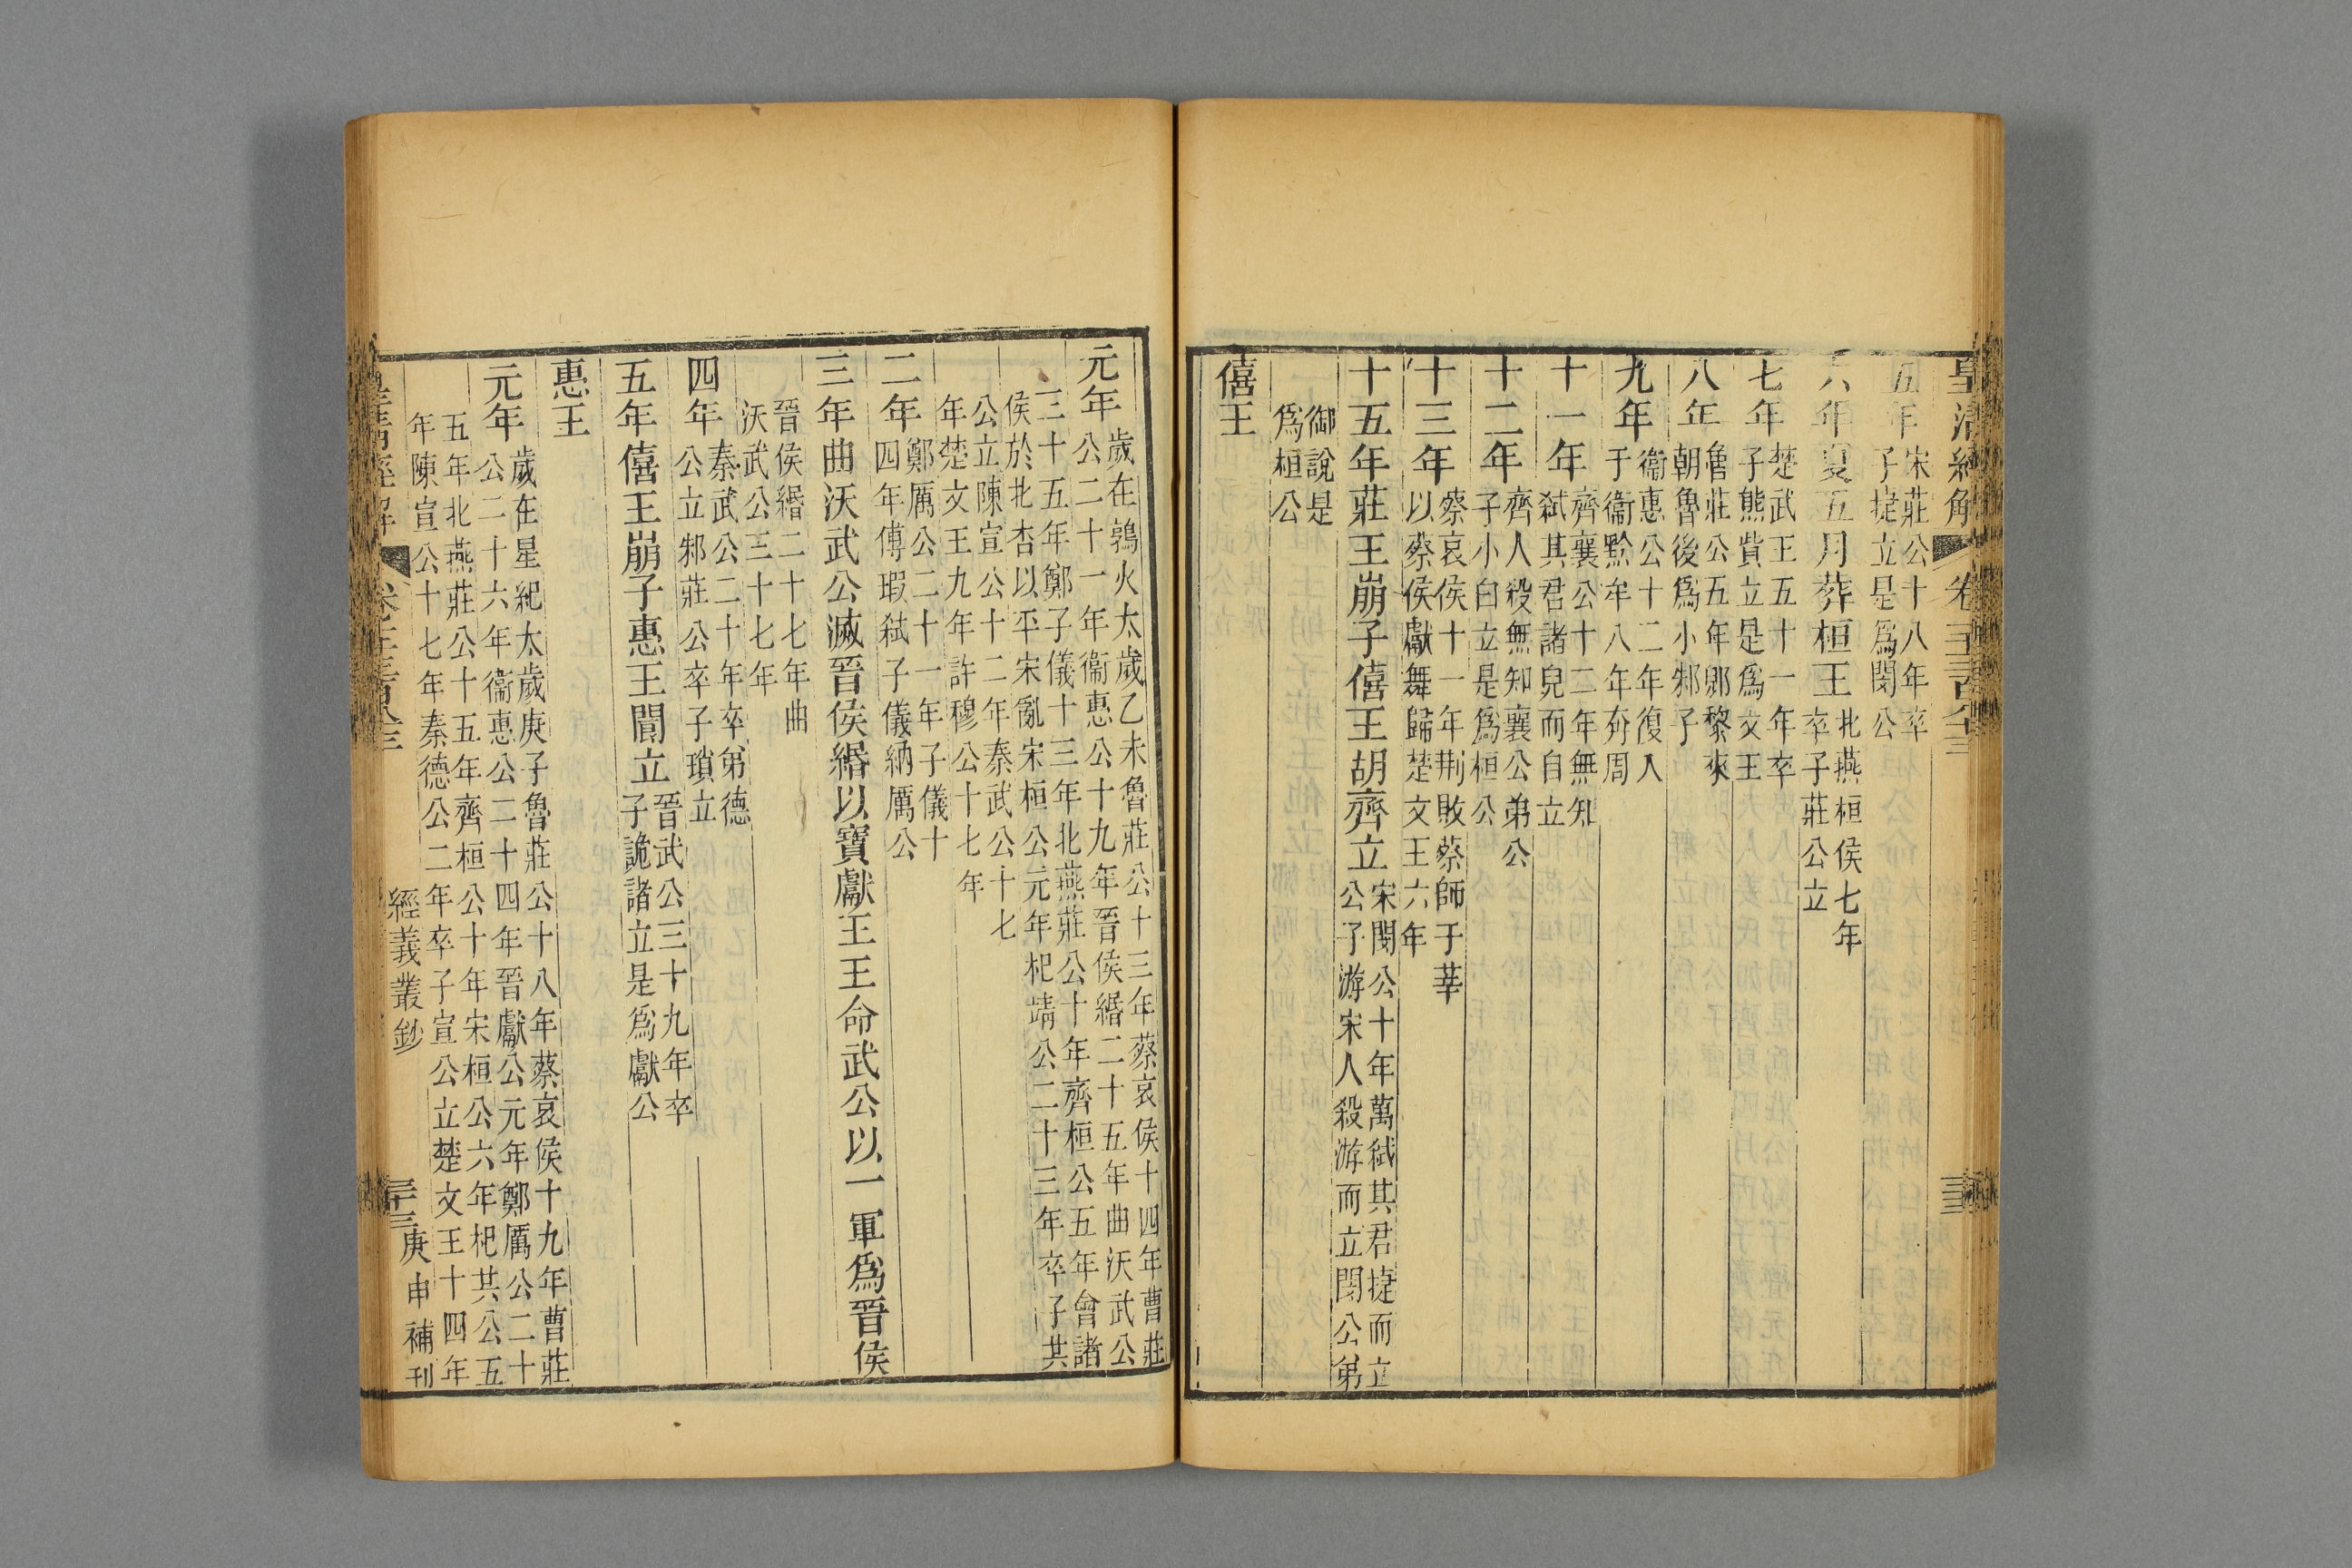 皇清經解 卷一千三百八十三
五年宋莊公十八年卒
子捷立是爲閔公
六年夏五月葬桓王北燕桓侯七年
卒子莊公立
七年楚武王五十一年卒
子熊貲立是爲文王
八年魯莊公五年郳黎來
朝魯後爲小邾子
九年衞惠公十二年復入
于衞黔牟八年奔周
十一年齊襄公十二年無知
弑其君諸兒而自立
十二年齊人殺無知襄公弟公
子小白立是爲桓公
十三年蔡哀侯十一年荆敗蔡師于莘
以蔡侯獻舞歸楚文王六年
十五年莊王崩子僖王胡齊立宋閔公十年萬弑其君捷而立
公子游宋人殺游而立閔公弟
御說是
爲桓公
僖王
元年歲在鶉火太歲乙未魯莊公十三年蔡哀侯十四年曹莊
公二十一年衞惠公十九年晉侯緡二十五年曲沃武公
三十五年鄭子儀十三年北燕莊公十年齊桓公五年會諸
侯於北杏以平宋亂宋桓公元年杞靖公二十三年卒子共
公立陳宣公十二年秦武公十七
年楚文王九年許穆公十七年
二年鄭厲公二十一年子儀十
四年傅瑕弑子儀納厲公
三年曲沃武公滅晉侯緡以寶獻王王命武公以一軍爲晉侯
晉侯緡二十七年曲
沃武公三十七年
四年秦武公二十年卒弟德
公立邾莊公卒子瑣立
五年僖王崩子惠王閬立晉武公三十九年卒
子詭諸立是爲獻公
惠王
元年歲在星紀太歲庚子魯莊公十八年蔡哀侯十九年曹莊
公二十六年衞惠公二十四年晉獻公元年鄭厲公二十
五年北燕莊公十五年齊桓公十年宋桓公六年杞共公五
年陳宣公十七年秦德公二年卒子宣公立楚文王十四年
皇清經解 經義叢鈔 庚申補刊